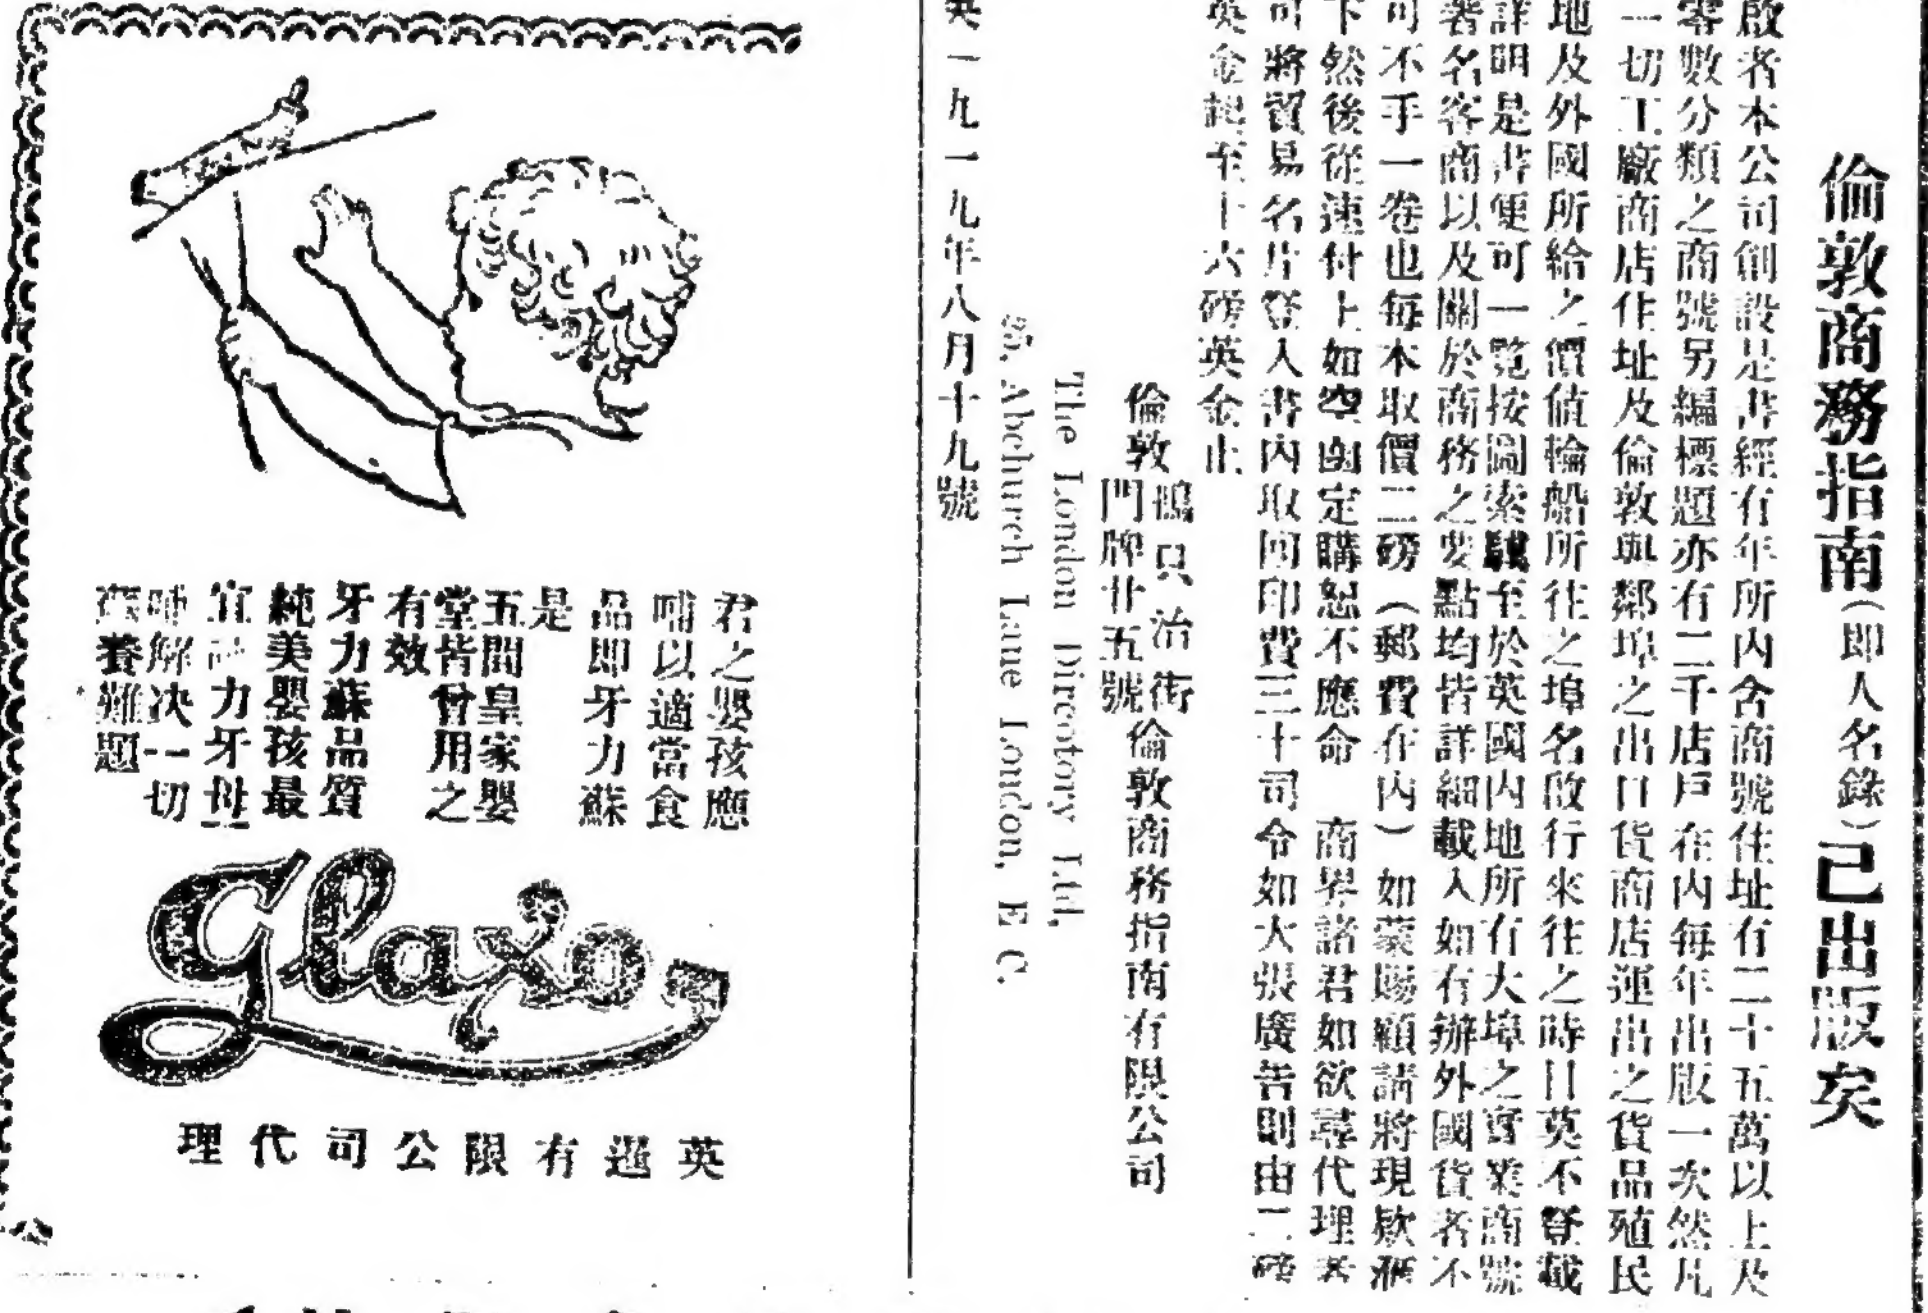 倫敦商務指南（即人名錄）己出版矣
啟者本公司創設是書經有年所內含商號住址有二十五萬以上及
零數分類之商號另編標題亦有二千店戶在內每年出版一次然凡
一切工廠商店住址及倫敦與鄰埠之出口貨商店運出之貨品殖民
地及外國所給之價值輪船所往之埠名啟行來往之時日莫不登載
詳明是書便可一覽按圖索驥至於英國內地所有大埠之實業商號
著名客商以及關於商務之要點均皆詳細載入如有辦外國貨者不
可不手一卷也每本取價二磅（郵費在內）如蒙賜顧請將現欵滙
下然後從速付上如空函定購恕不應命　商界諸君如欲尋代理者
可將貿易名片登入書內取回印費三十司令如大張廣告則由二磅
英金起至十六磅英金止
倫敦鴨只治街門牌廿五號倫敦商務指南有限公司
The London Directory Ltd,
25, Abchurch Lane London, E C.
英一九一九年八月十九號
君之嬰孩應
哺以適當食
品即牙力蘇
是
五間皇家嬰
堂皆曾用之
有效
牙力蘇品質
純美嬰孩最
宜 力牙母
能解决一切
養難題
Glaxo
英 有限公司代理